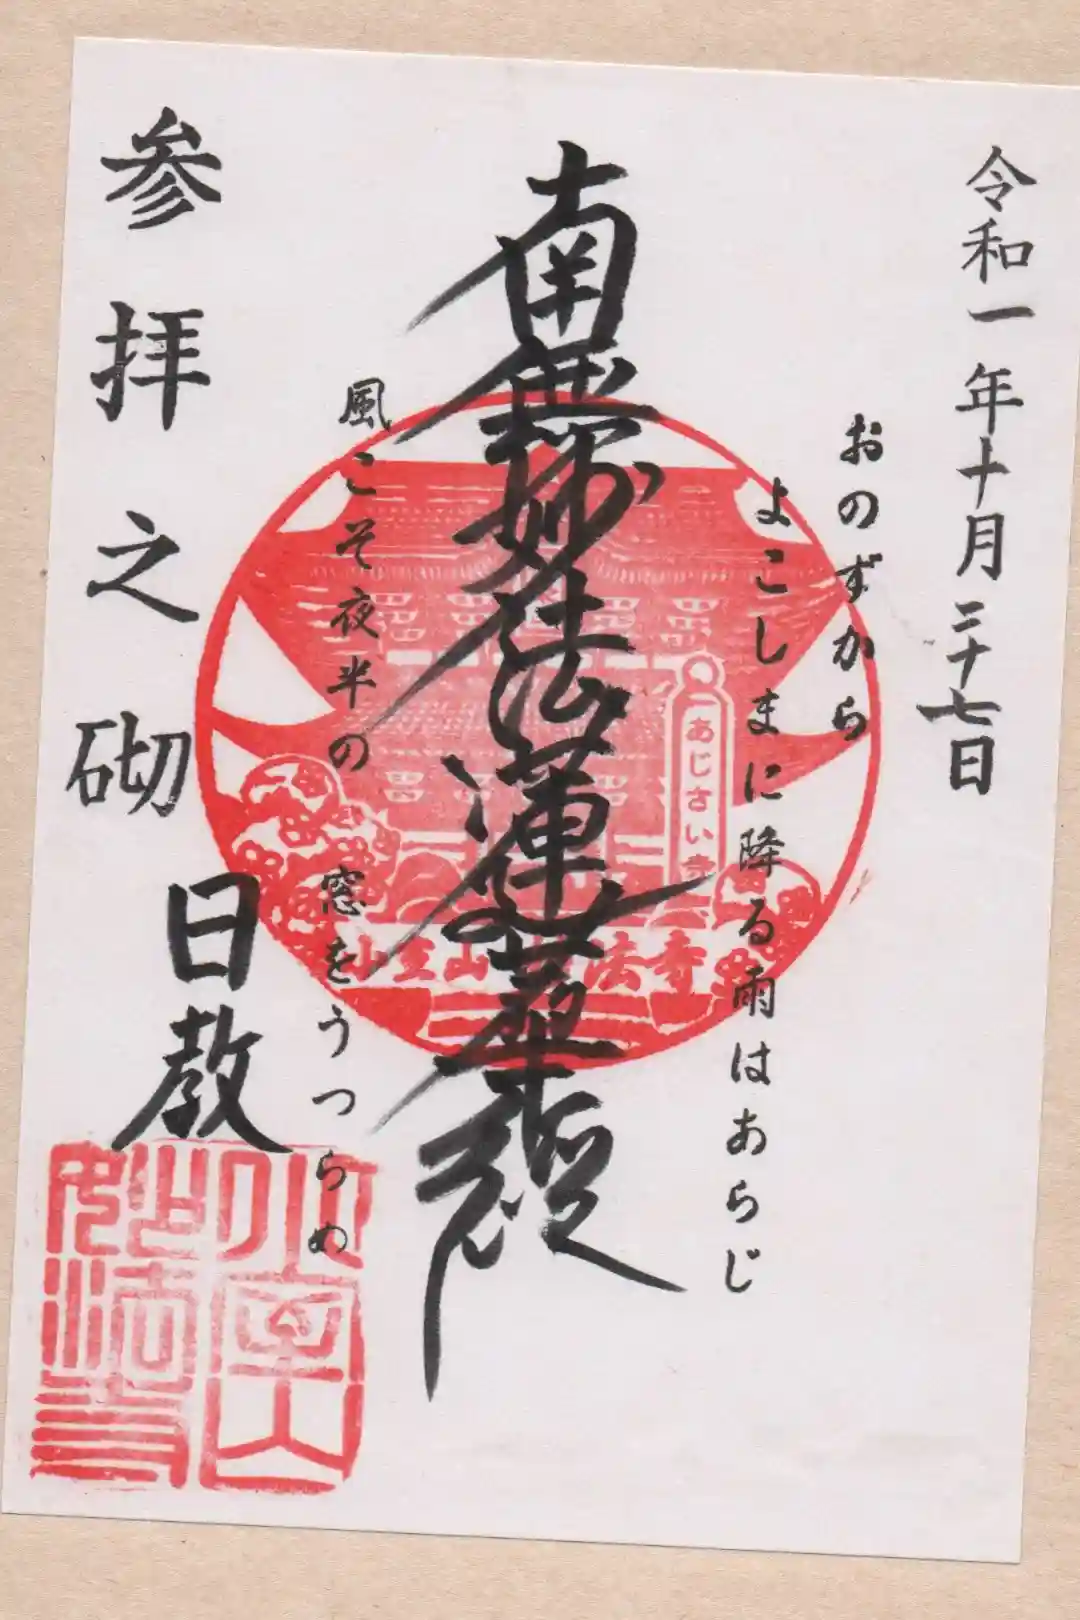 令和一年十月二十七日
おのずから
よこしまに降る雨はあらじ
南無妙法蓮華経
風こそ夜半の 窓をうつらめ
参拝之砌
日教
あじさい寺
山妙法寺